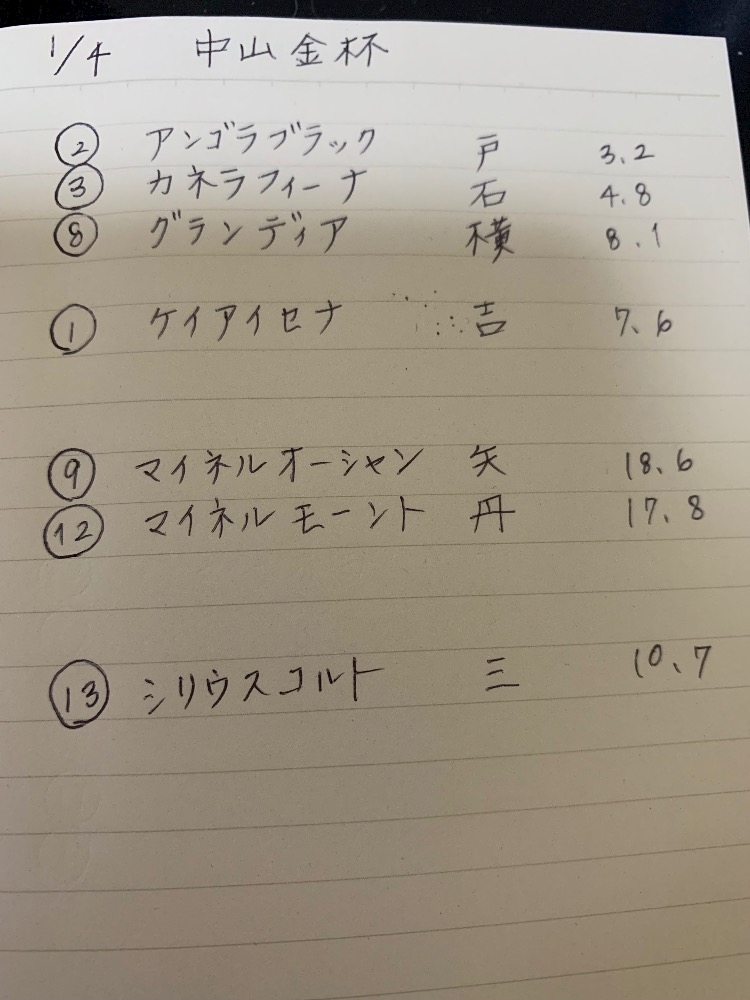 1/4 中山金杯
② アンゴラブラック 戸 3.2
③ カネラフィーナ 石 4.8
⑧ グランディア 横 8.1
① ケイアイセナ 吉 7.6
⑨ マイネルオーシャン 矢 18.6
⑫ マイネルモーント 丹 17.8
⑬ シリウスコルト 三 10.7